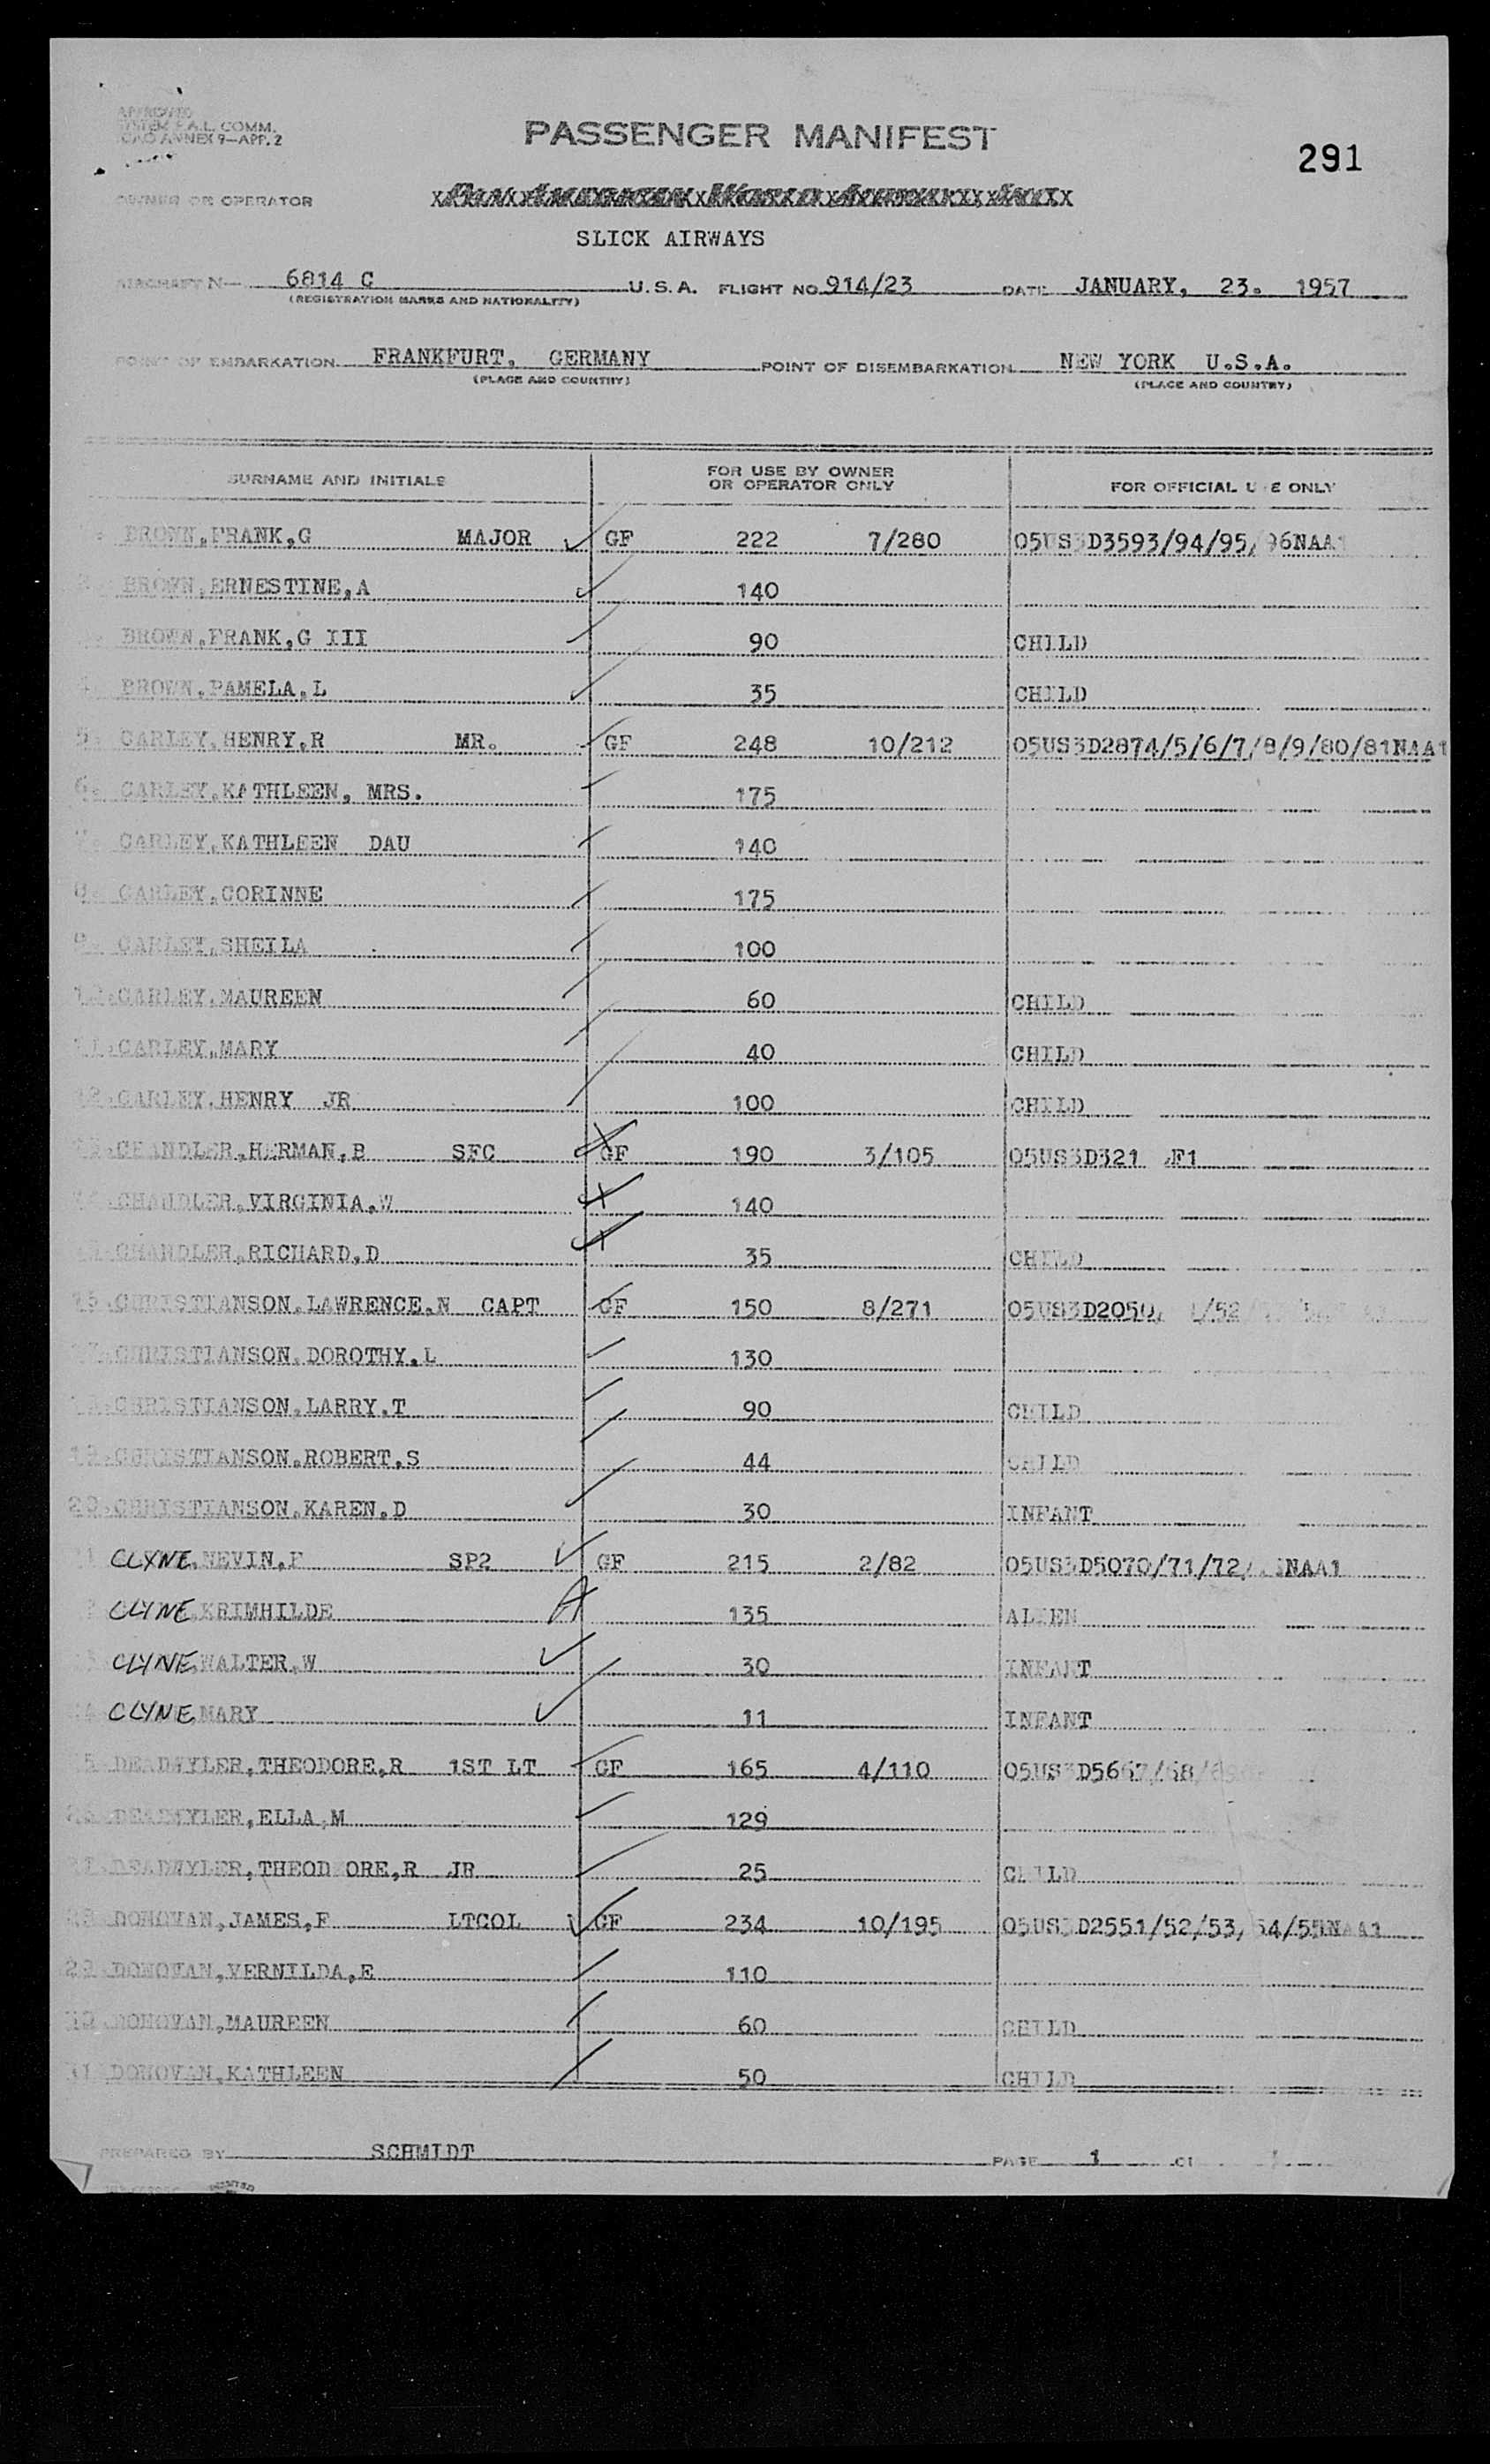 APPROVED
SYSTEM F.A.L. COMM.
ICAO ANNEX 9—APP. 2
PASSENGER MANIFEST
291
OWNER OR OPERATOR
SLICK AIRWAYS
AIRCRAFT N— 6814 C U.S.A. FLIGHT NO. 914/23 DATE JANUARY, 23. 1957
(REGISTRATION MARKS AND NATIONALITY)
POINT OF EMBARKATION FRANKFURT, GERMANY POINT OF DISEMBARKATION NEW YORK U.S.A.
(PLACE AND COUNTRY) (PLACE AND COUNTRY)
SURNAME AND INITIALS FOR USE BY OWNER OR OPERATOR ONLY FOR OFFICIAL USE ONLY
BROWN,FRANK,G MAJOR GF 222 7/280 05US3D3593/94/95/96NAA1
BROWN,ERNESTINE,A 140
BROWN,FRANK,G III 90 CHILD
4. BROWN,PAMELA,L 35 CHILD
5. CARLEY,HENRY,R MR. GF 248 10/212 05US3D2874/5/6/7/8/9/80/81NAA1
6. CARLEY,KATHLEEN, MRS. 175
7. CARLEY,KATHLEEN DAU 140
8. CARLEY,CORINNE 175
9. CARLEY,SHEILA 100
10.CARLEY,MAUREEN 60 CHILD
11.CARLEY,MARY 40 CHILD
12.CARLEY,HENRY JR 100 CHILD
13.CHANDLER,HERMAN,B SFC GF 190 3/105 05US3D321 F1
14.CHANDLER,VIRGINIA,W 140
15.CHANDLER,RICHARD,D 35 CHILD
16.CHRISTIANSON,LAWRENCE,N CAPT GF 150 8/271 05US3D2050/ 1/52
17.CHRISTIANSON,DOROTHY,L 130
18.CHRISTIANSON,LARRY,T 90 CHILD
19.CHRISTIANSON,ROBERT,S 44 CHILD
20.CHRISTIANSON,KAREN,D 30 INFANT
21 CLYNE,NEVIN,F SP2 GF 215 2/82 05US3D5070/71/72/ NAA1
CLYNE,KRIMHILDE 135 ALIEN
CLYNE,WALTER,W 30 INFANT
CLYNE,MARY 11 INFANT
5 DEADWYLER,THEODORE,R 1ST LT GF 165 4/110 05US3D5667/68/
26 DEADWYLER,ELLA,M 129
27.DEADWYLER,THEOD ORE,R JR 25 CHILD
28 DONOVAN,JAMES,F LTCOL GF 234 10/195 05US3D2551/52/53/54/55NAA1
29 DONOVAN,VERNILDA,E 110
30 DONOVAN,MAUREEN 60 CHILD
31 DONOVAN,KATHLEEN 50 CHILD
PREPARED BY SCHMIDT PAGE 1 OF